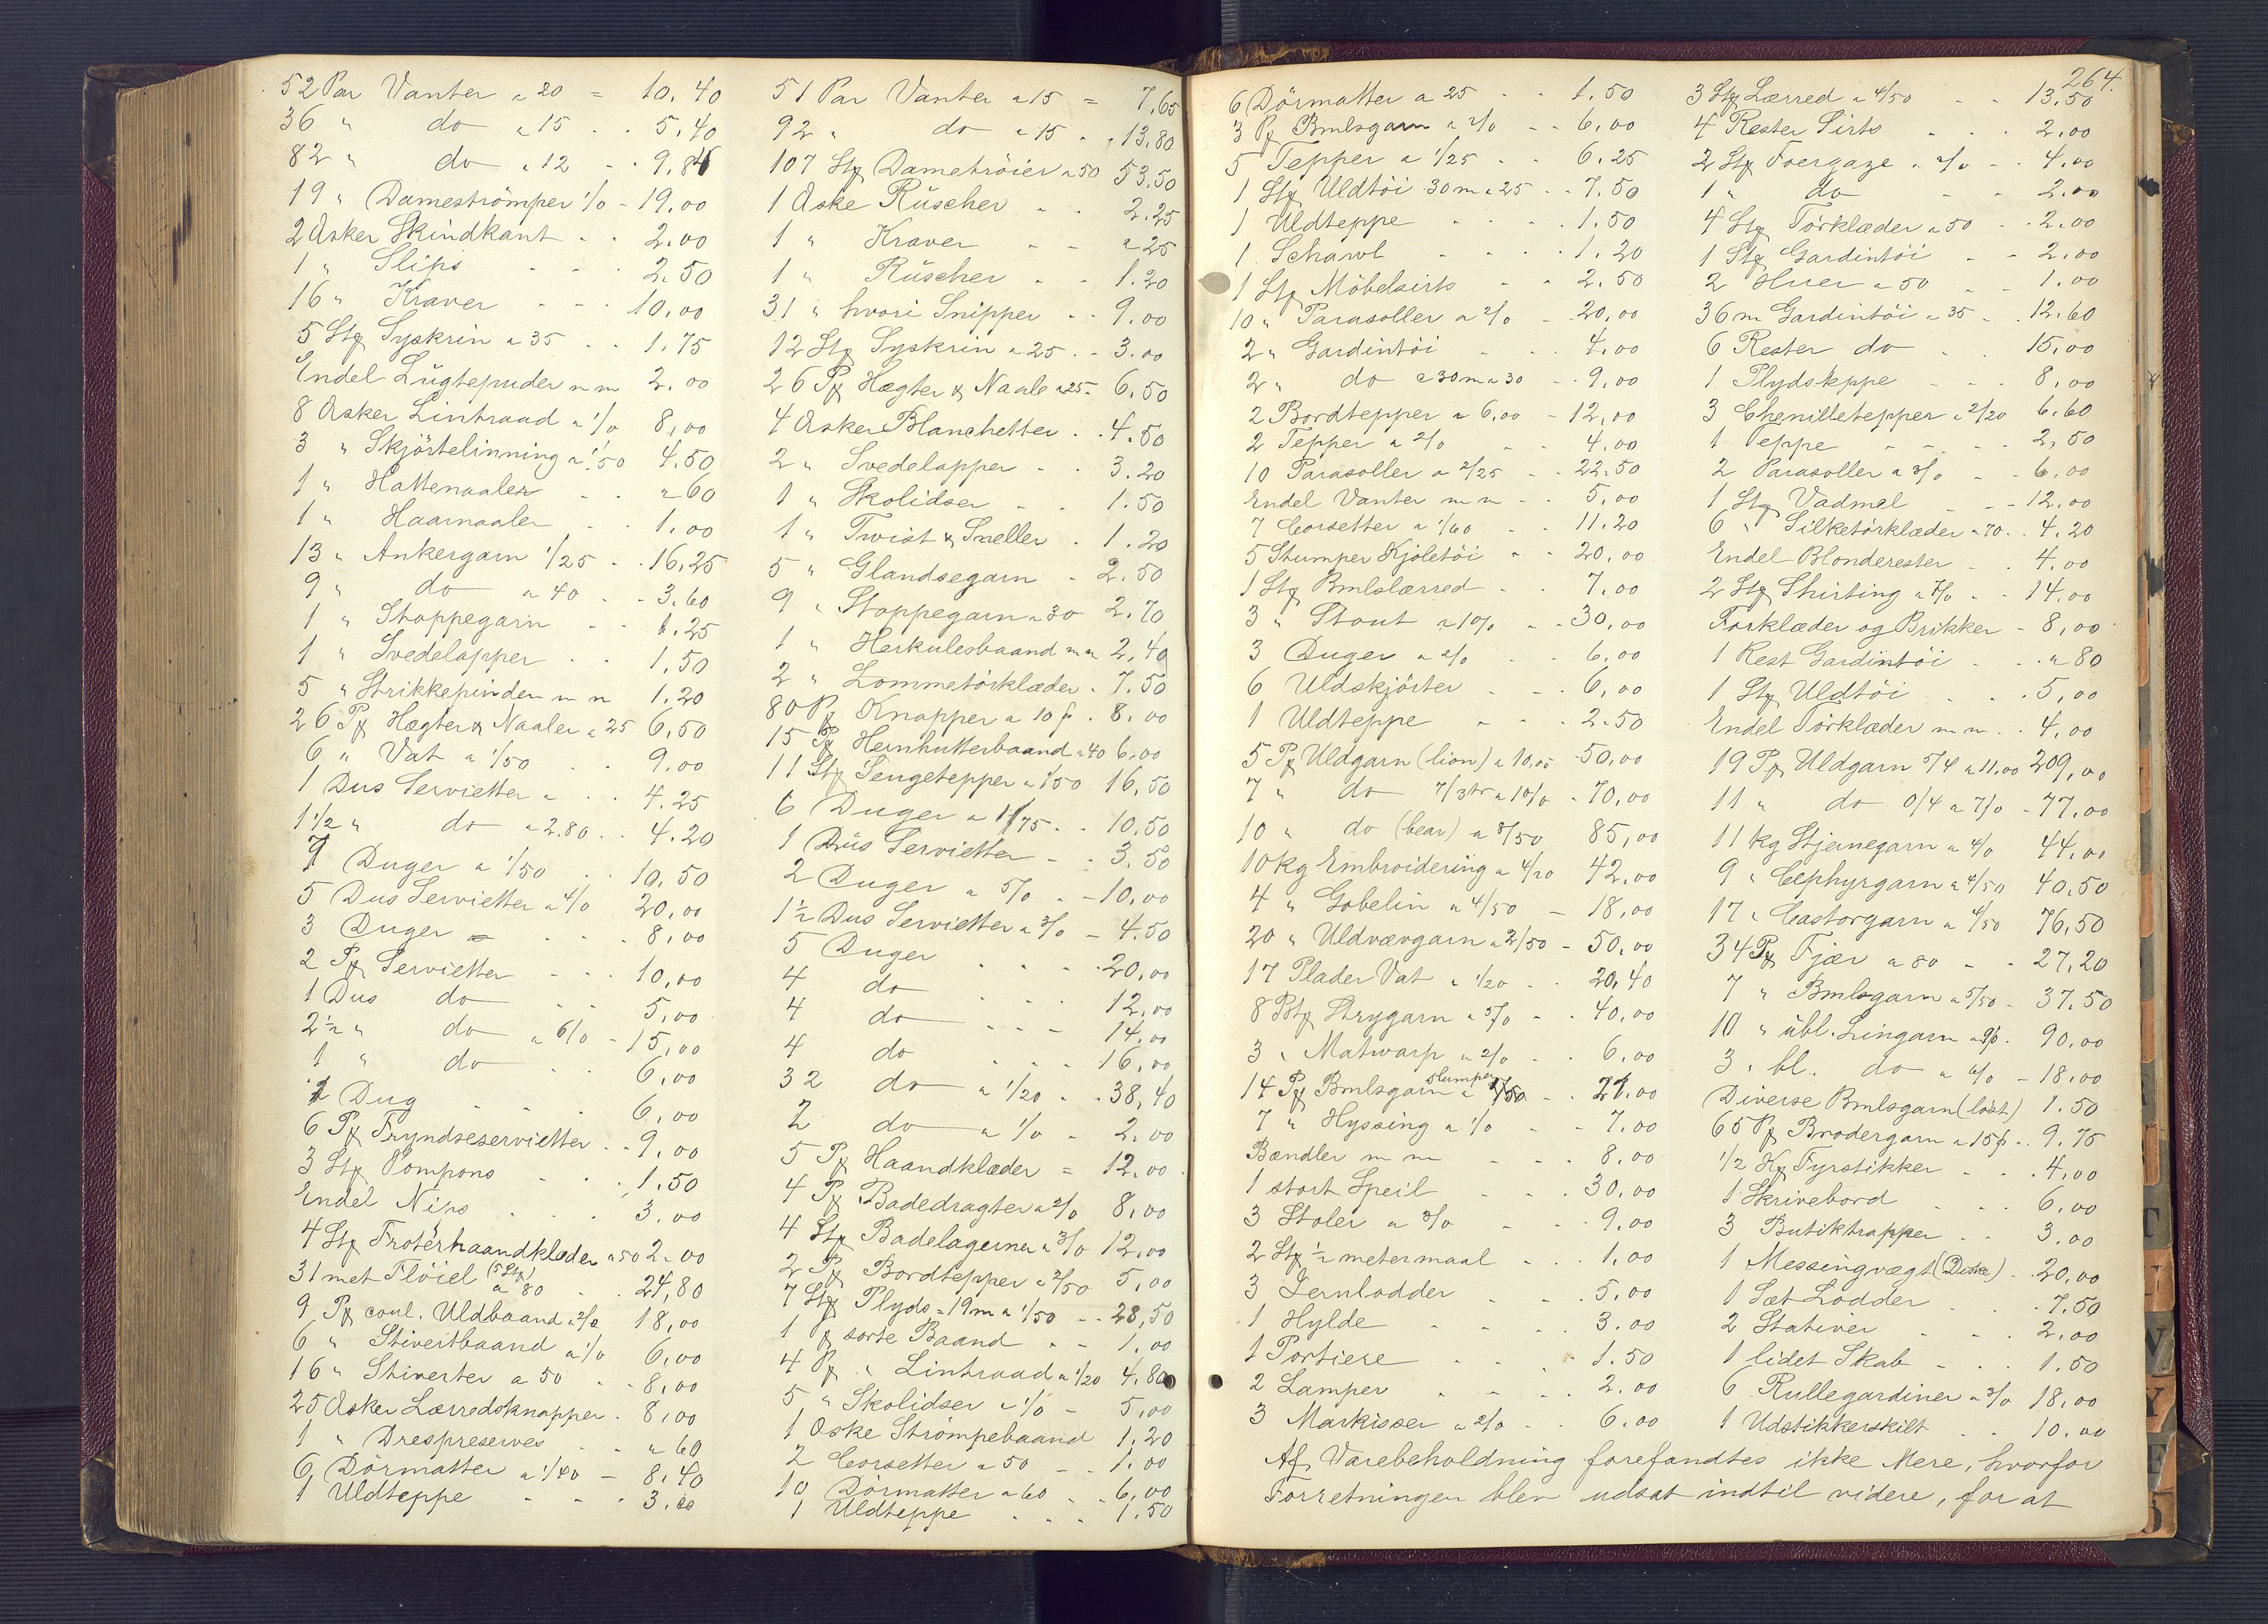 52 Par Vanter a 20 = 10.40
36 " do a 15 . . 5.40
82 " do a 12 . . 9.84
19 " Dameströmper 1/0 - 19,00
2 Æsker Skindkant . . 2.00
1 " Slips . . . 2.50
16 " Kraver - - - 10,00
5 Stk Syskrin a 35 . . 1.75
Endel Lugtepuder m m 2.00
8 Æsker Lintraad a 1/0 8,00
3 " Skjörtelinning a 1.50 4.50
1 " Hattenaaler . . " 60
1 " Haarnaaler . . 1.00
13 " Ankergarn 1/25 . . 16,25
9 " do a 40 . . 3.60
1 " Stoppegarn . . 1.25
1 " Svedelapper . . 1.50
5 " Strikkepinder m m 1.20
26 Pk Hægter & Naaler a 25 6,50
6 " Vat a 1/50 . . 9.00
1 Dus Servietter a . . 4.25
1 1/2 " do a 2.80 . . 4.20
7 Duger a 1/50 . . 10.50
5 Dus Servietter a 4/0 20,00
3 Duger . . . 8,00
2 Pk Servietter - . . 10,00
1 Dus do . . 5,00
2 1/2 " do a 6/0 - 15,00
1 " do . . 6,00
1 Dug . . . 6,00
6 Pk Fryndseservietter . . 9,00
3 Stk Pompons . . . 1.50
Endel Nips . . . 3.00
4 Stk Frotérhaandklæder a 50 2.00
31 met Flöiel (5 Stk) a 80 . . 24,80
9 Pk coul. Uldbaand a 2/0 18,00
6 " Stivertbaand a 1/0 6,00
16 " Stiverter a 50 . . 8,00
25 Æsker Lærredsknapper . 8,00
1 " Drespreserves . . " 60
6 Dörmatter a 1/40 - 8.40
1 Uldteppe - - . 3.00
51 Par Vanter a 15 = 7.65
92 " do a 15 . . 13,80
107 Stk Dametröier a 50 53.50
1 Æske Rüscher . . 2.25
1 " Kraver - - " 25
1 " Rüscher . . 1.20
31 " hvori Snipper . . 9.00
12 Stk Syskrin a 25 . . 3.00
26 Pk Hægter & Naale a 25 - 6,50
4 Æsker Blanchetter . . 4.50
2 " Svedelapper . . 3.20
1 " Skolidser . . 1.50
1 " Twist & Sneller . 1.20
5 " Glandsegarn . 2.50
9 " Stoppegarn a 30 2.70
1 " Herkulesbaand m m 2,40
2 " Lommetörklæder . 7.50
80 Pk Knapper a 10 p . 8.00
15 Pk Hernhutterbaand a 40 6,00
11 Stk Sengetepper a 1/50 16,50
6 Duger a 1/75 . . 10.50
1 Düs Servietter - . 3.50
2 Duger a 5/0 . - 10,00
1 1/2 Dus Servietter a 3/0 - 4.50
5 Duger . . . . 20,00
4 do . . . 12,00
4 do - - - 14,00
4 do . . . 16,00
32 do a 1/20 . . 38,40
2 do a 1/0 - 2.00
5 Pk Haandklæder = 12.00
4 Pk Badedragter a 2/0 8,00
4 Stk Badelagener a 3/0 12,00
2 Pk Bordtepper a 2/50 5,00
7 Stk Plyds = 19 m a 1/50 - - 28,50
1 Pk sorte Baand . - 1,00
4 Pk " Lintraad a 1/20 4.80
5 " Skolidser a 1/0 - 5,00
1 Æske Strömpebaand 1,20
2 Corsetter a 50 - - 1.00
10 Dörmatter a 60 . . 6,00
1 Uldteppe . . . 1.50
264.
6 Dörmatter a 25 . . 1.50
3 Pk Bmlsgarn a 2/0 - - 6,00
5 Tepper a 1/25 . . 6.25
1 Stk Uldtöi 30 m a 25 . . 7.50
1 Uldteppe - - - . 1.50
1 Schawl - - - . 1.20
1 Stk Möbelsirts . . 2.50
10 " Parasoller a 2/0 - 20,00
2 " Gardintöi - - . 4.00
2 " do a 30 m a 30 - - 9,00
2 Bordtepper a 6,00 - 12,00
2 Tepper a 2/0 - - 4.00
10 Parasoller a 2/25 - - 22.50
Endel Vanter m m - . 5,00
7 Corsetter a 1/60 . . 11.20
5 Stumper Kjoletöi - - 20,00
1 Stk Bmlslærred - . 7.00
3 " Stout a 10/0 - . 30,00
3 Duger a 2/0 . . 6,00
6 Uldskjörter - - . 6,00
1 Uldteppe - - . 2.50
5 Pk Uldgarn (lion) a 10,00 50,00
7 " do 7/3tr a 10/0 - 70,00
10 " do (bear) a 8/50 85,00
10 kg Embroidering a 4/20 42,00
4 " Gobelin a 4/50 - 18,00
20 " Uldvævgarn a 2/50 - 50,00
17 Plader Vat a 1/20 . . 20,40
8 Pk Strygarn a 5/0 - . 40,00
3 " Matwarp a 2/0 . . 6,00
14 Pk Bmlsgarn slumper a 1/50 . . 21.00
7 " Hyssing a 1/0 - - 7.00
Bændler m m - - - 8.00
1 stort Speil - - . 30,00
3 Stoler a 3/0 - - . 9.00
2 Stk 1/2 metermaal . . . 1.00
3 Jernlodder - - . 5.00
1 Hylde - - - . 3.00
1 Portiere . . . 1.50
2 Lamper . - - . 2.00
3 Markisser a 2/0 . . 6.00
3 Stk Lærred a 4/50 . . 13.50
4 Rester Sirts - - . 2.00
2 Stk Foergaze a 2/0 - . 4.00
1 " do - - 2.00
4 Stk Törklæder a 50 - . 2.00
1 Stk Gardintöi - - 2.00
2 Huer a 50 - - 1.00
36 m Gardintöi a 35 - . 12.60
6 Rester do . . 15,00
1 Plydsteppe - - . 8,00
3 Chenilletepper a 2/20 6.60
1 Teppe - - - . 2,50
2 Parasoller a 3/0 - - 6,00
1 Stk Vadmel . - - 12,00
6 " Silketörklæder a 70 . . 4.20
Endel Blonderester . . 4.00
2 Stk Shirting a 7/0 - . 14,00
Forklæder og Brikker - 8,00
1 Rest Gardintöi . . . " 80
1 Stk Uldtöi . . . 5,00
Endel Törklæder m m . . 4,00
19 Pk Uldgarn 5/4 a 11.00 209,00
11 " do 0/4 a 7/0 - 77.00
11 kg Stjernegarn a 4/0 44,00
9 " Cephyrgarn a 4/50 40.50
17 " Castorgarn a 4/50 76,50
34 Pk Fjær a 80 - . 27,20
7 " Bmlsgarn a 5/50 - 37.50
10 " übl. Lingarn a 9/0 . 90,00
3 " bl. do a 6/0 - 18,00
Diverse Bmlsgarn (löst) 1.50
65 Pk Brodergarn a 15 p . . 9.75
1/2 Kg Fyrstikker . . . 4,00
1 Skrivebord . . . 6,00
3 Butiktrapper . . 3.00
1 Messingvægt (Diske) . 20,00
1 Sæt Lodder . . . 7.50
2 Stativer . . . 2.00
1 lidet Skab - - . 1.50
6 Rullegardiner a 3/0 18,00
1 Udstikkerskilt . . 10.00
Af Varebeholdning forefandtes ikke Mere, hvorfor
Forretningen blev udsat indtil videre, for at